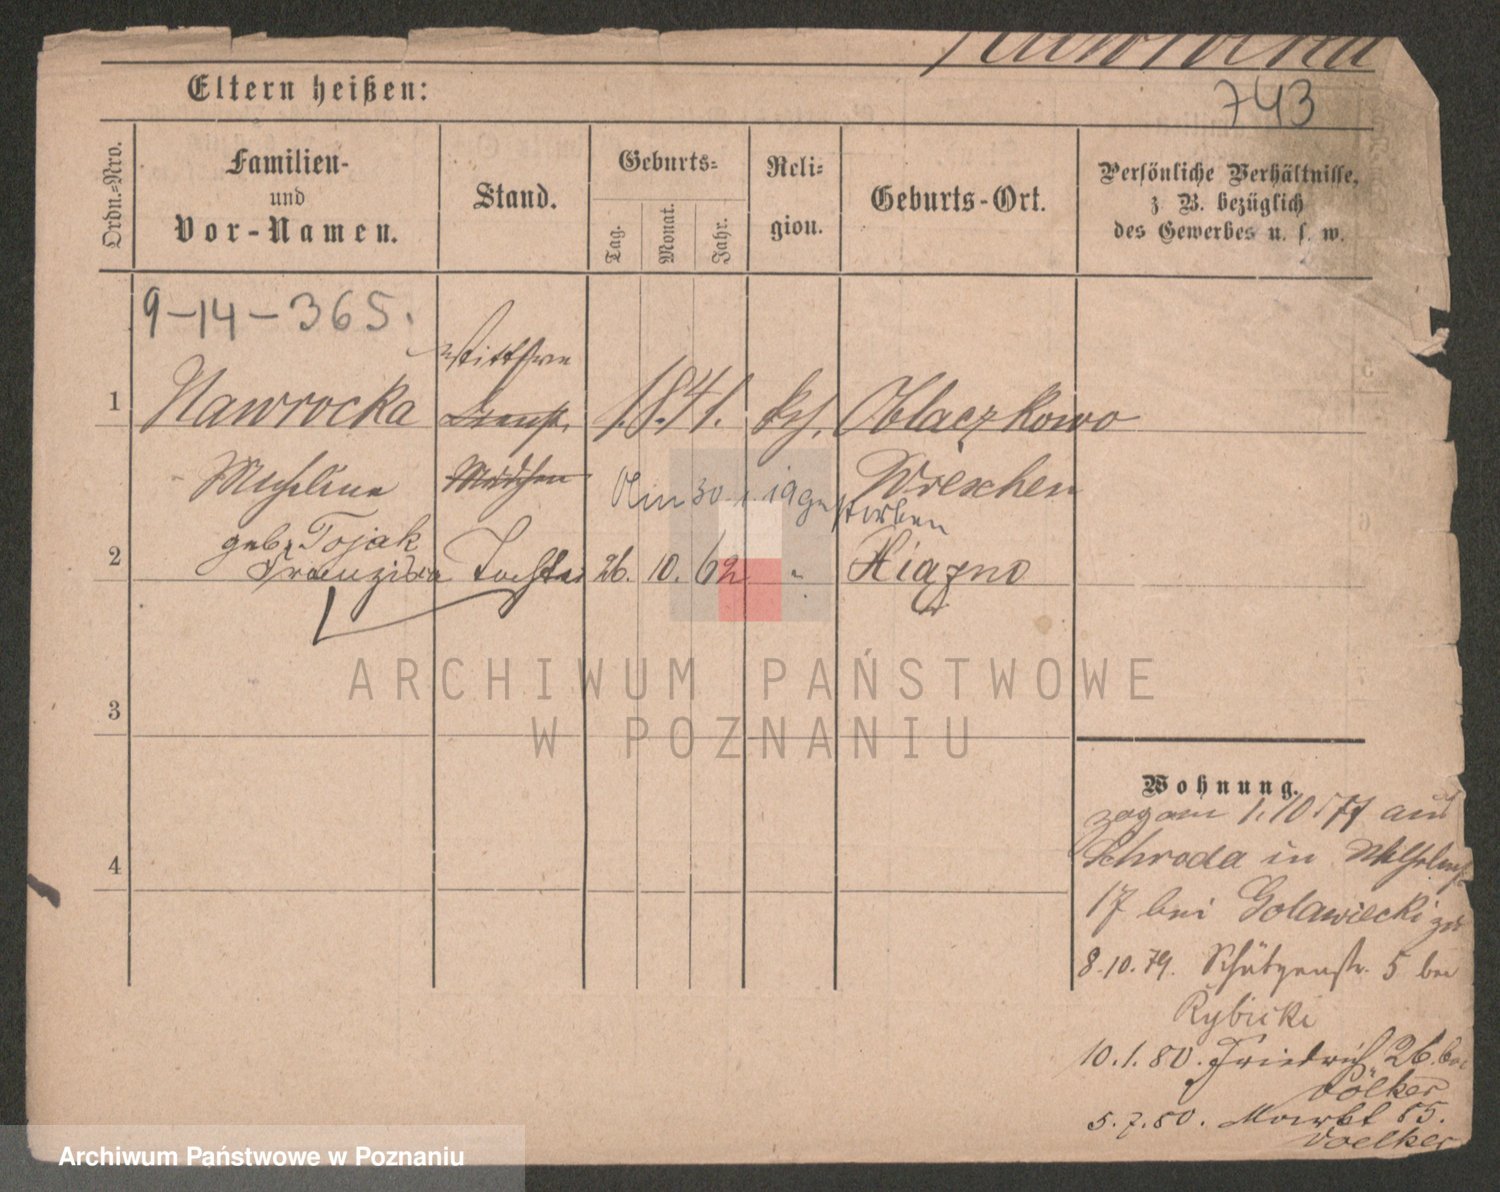 Nawrocka
Eltern heißen:
743
Ordn.-Nro.
Familien-
und
Vor-Namen.
Stand.
Geburts-
Tag.
Monat.
Jahr.
Reli-
gion.
Geburts-Ort.
Persönliche Verhältnisse,
z. B. bezüglich
des Gewerbes u. s. w.
9-14-365.
Wittwe
1 Nawrocka 1841. kth. Oblaczkowo
Micheline Mädchen Wreschen
Am 30. 1. 19 gestorben
geb. Tojak
2 Franziska Tochter 26. 10. 62 " Kiązno
3
4
ARCHIWUM PAŃSTWOWE
W POZNANIU
Wohnung.
zog am 1.10.77 aus
Schroda in
17 bei Golawiecki zu
8.10.79. Schützenstr. 5 bei
Rybicki
10.1.80. Friedrich 26. bei
Völker
5.7.80. Markt 85.
Voelker
Archiwum Państwowe w Poznaniu